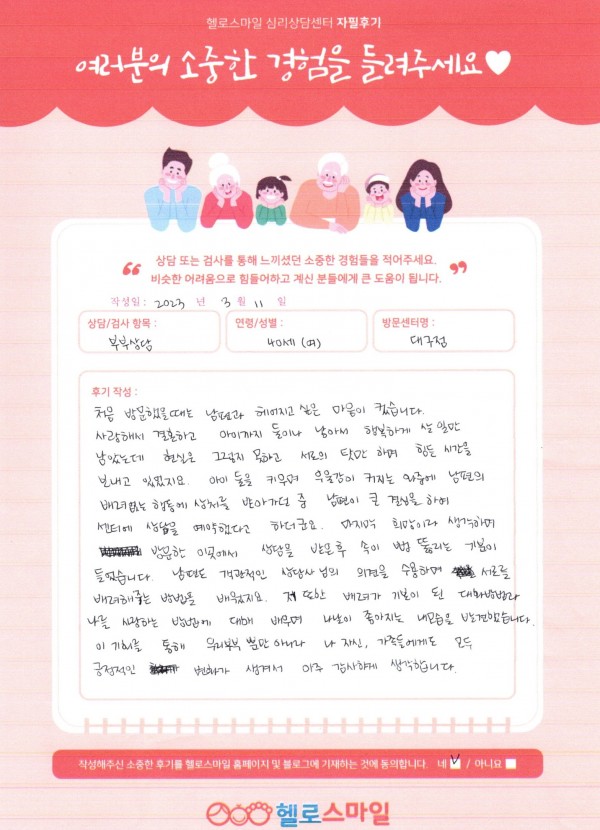 헬로스마일 심리상담센터 자필후기
여러분의 소중한 경험을 들려주세요♥
상담 또는 검사를 통해 느끼셨던 소중한 경험들을 적어주세요.
비슷한 어려움으로 힘들어하고 계신 분들에게 큰 도움이 됩니다.
작성일 : 2023 년 3 월 11 일
상담/검사 항목 : 부부상담
연령/성별 : 40세 (여)
방문센터명 : 대구점
후기 작성 :
처음 방문했을때는 남편과 헤어지고 싶은 마음이 컸습니다.
사랑해서 결혼하고 아이까지 둘이나 낳아서 행복하게 살 일만
남았는데 현실은 그렇지 못하고 서로의 탓만 하며 힘든 시간을
보내고 있었지요. 아이 둘을 키우며 우울감이 커지는 와중에 남편의
배려없는 행동에 상처를 받아가던 중 남편이 큰 결심을 하여
센터에 상담을 예약했다고 하더군요. 마지막 희망이라 생각하며
방문한 이곳에서 상담을 받은후 속이 뻥 뚫리는 기분이
들었습니다. 남편도 객관적인 상담사님의 의견을 수용하며 서로를
배려해주는 방법을 배웠지요. 저 또한 배려가 기본이 된 대화방법과
나를 사랑하는 방법에 대해 배우며 나날이 좋아지는 내모습을 발견했습니다.
이 기회를 통해 우리부부 뿐만 아니라 나 자신, 가족들에게도 모두
긍정적인 변화가 생겨서 아주 감사하게 생각합니다.
작성해주신 소중한 후기를 헬로스마일 홈페이지 및 블로그에 기재하는 것에 동의합니다. 네 V / 아니요
헬로스마일